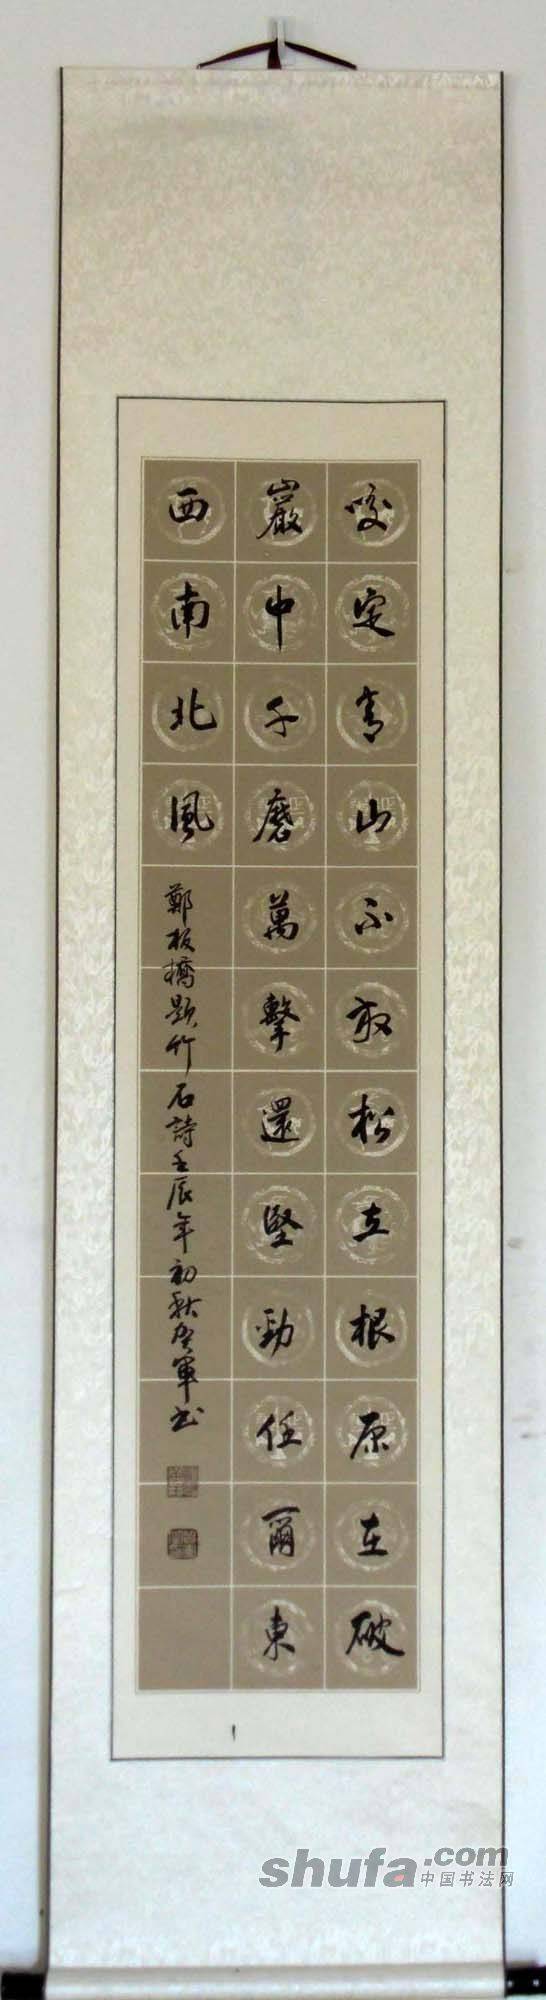 咬定青山不放松立根原在破
巖中千磨萬擊還堅勁任爾東
西南北風
鄭板橋題竹石詩壬辰年初秋軍书
shufa.com
中国书法网